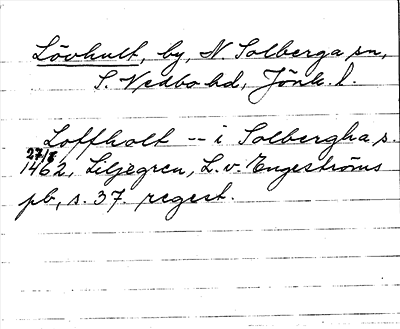 Lövhult, by, N. Solberga sn,
S. Vedbo hd, Jönk. l.
Loffholt -- i Solbergha s.
27/8
1462, Liljegren, L. v. Engeströms
pb, s. 37. regest.